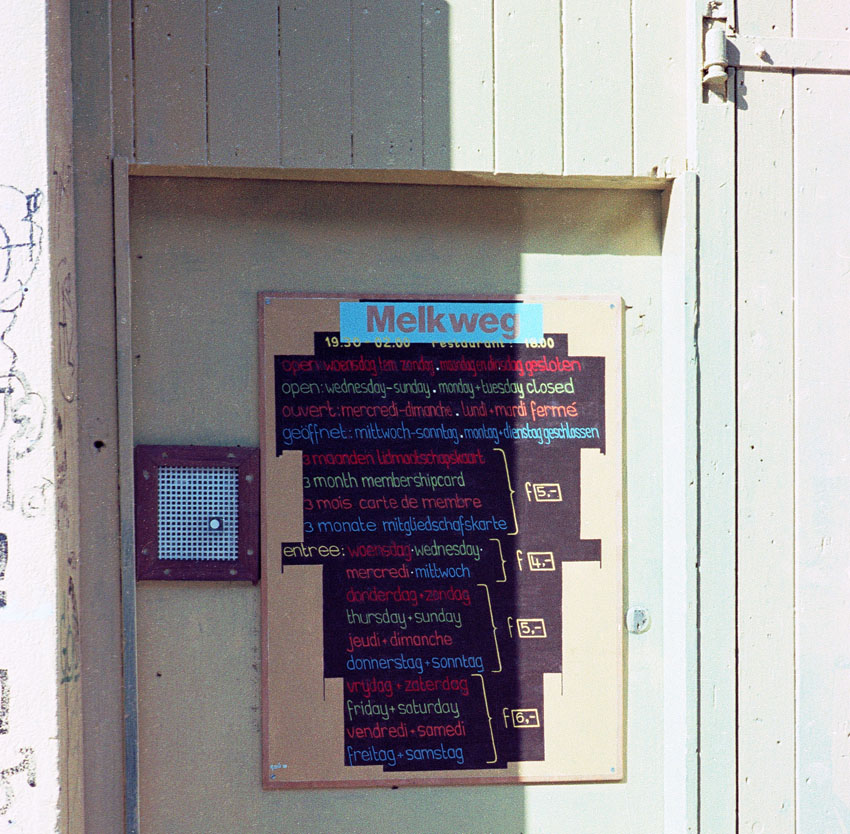 Melkweg
19.30 - 02.00 restaurant: 18.00
open: woensdag t.em zondag. maandag en dinsdag gesloten
open: wednesday-sunday. monday+tuesday closed
ouvert: mercredi-dimanche. lundi+mardi fermé
geöffnet: mittwoch-sonntag. montag+dienstag geschlassen
3 maanden lidmaatschapskaart
3 month membershipcard
3 mois carte de membre
3 monate mitgliedschafskarte
f 5,-
entree: woensdag·wednesday·
mercredi·mittwoch
f 4,-
donderdag+zondag
thursday+sunday
jeudi+dimanche
donnerstag+sonntag
f 5,-
vrijdag+zaterdag
friday+saturday
vendredi+samedi
freitag+samstag
f 6,-